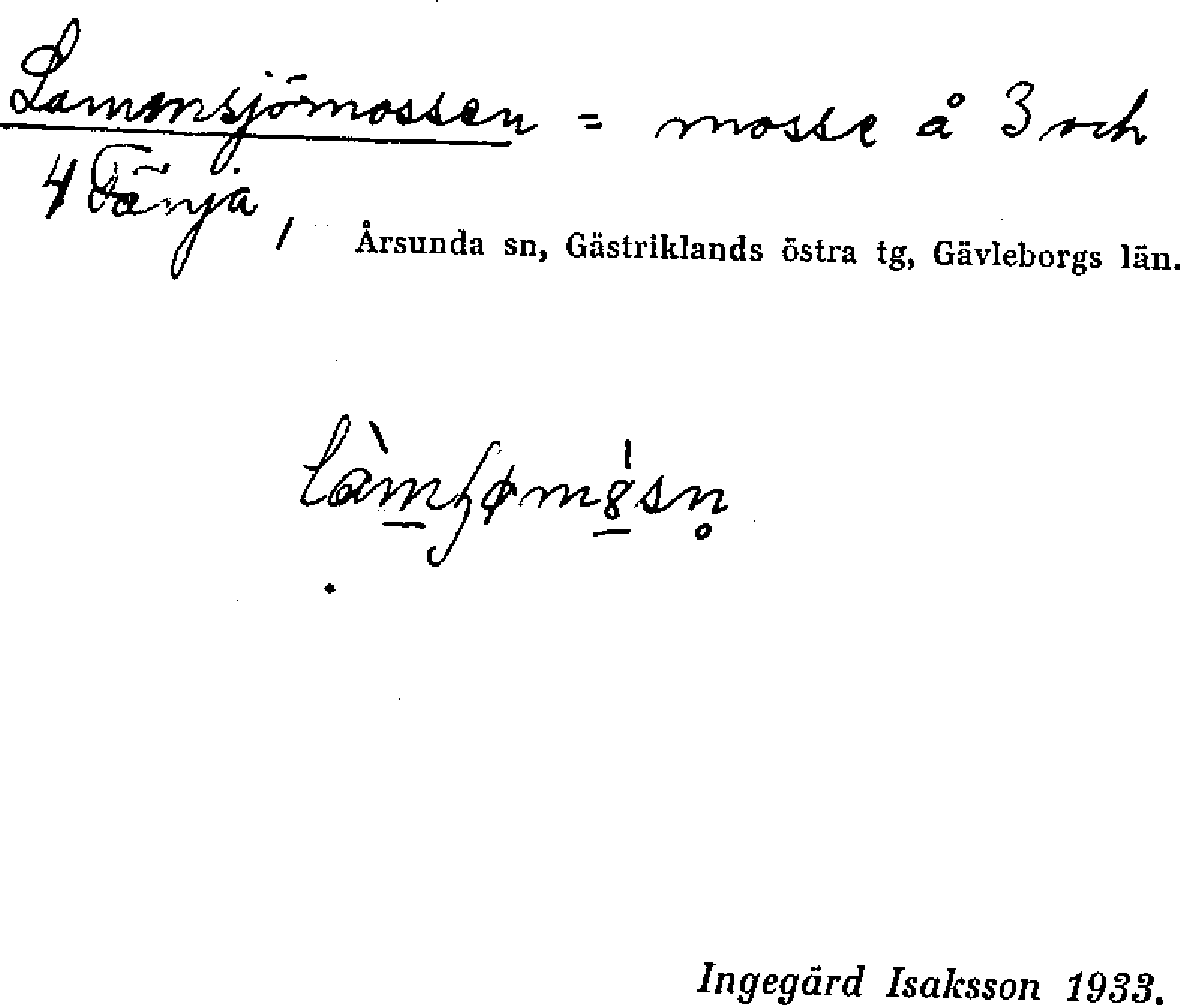 Lammsjömossen = mosse å 3 och
4 Fänja, Årsunda sn, Gästriklands östra tg, Gävleborgs län.
Ingegärd Isaksson 1933.